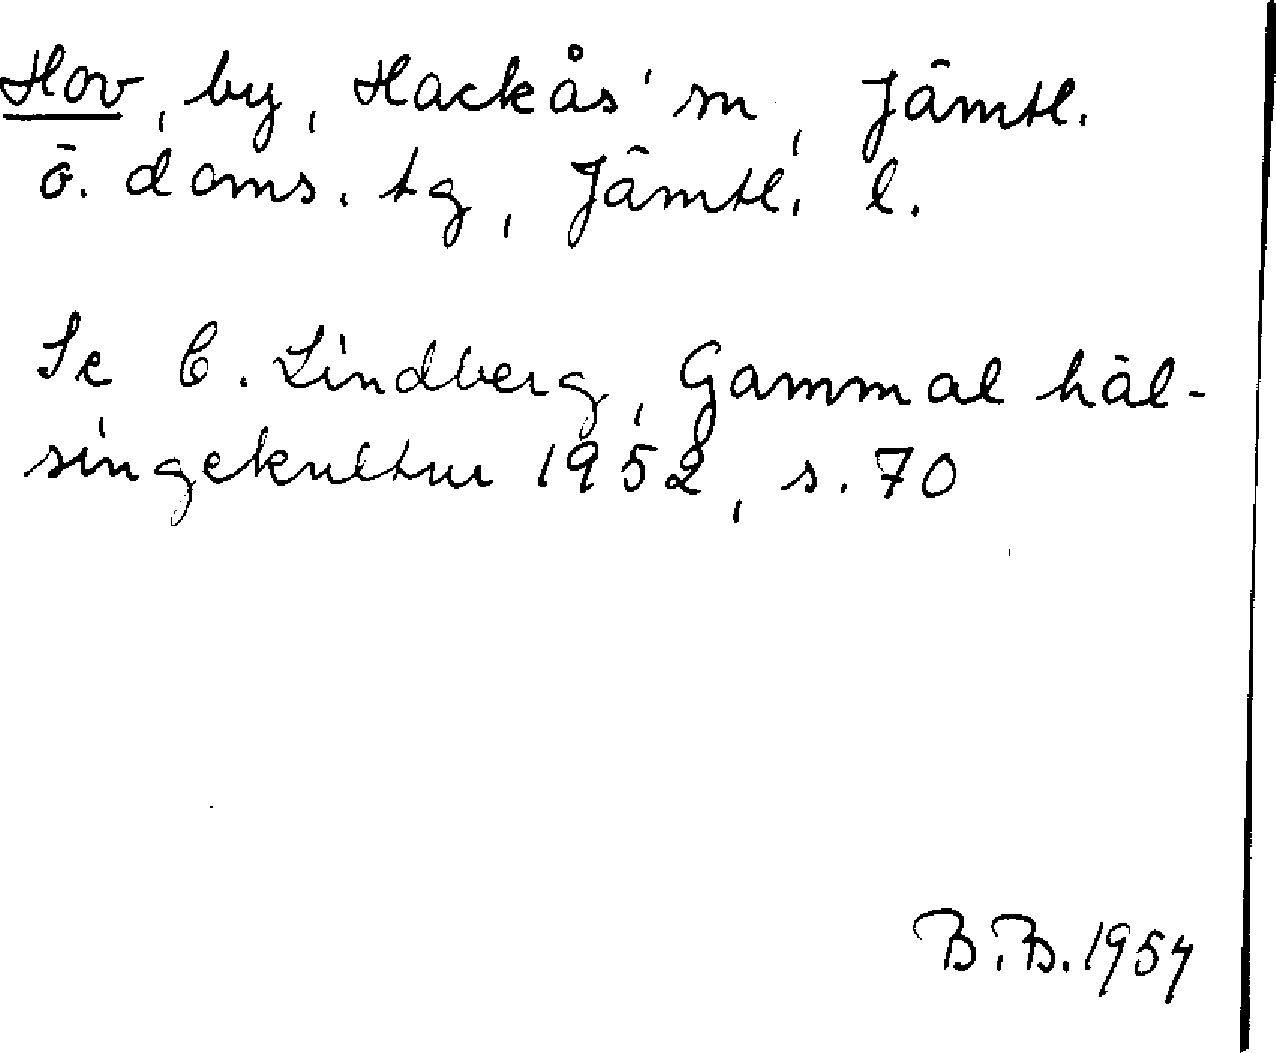 Hov, by, Hackås' sn, Jämtl.
ö. doms. tg, Jämtl. l.
Se C. Lindberg, Gammal häl-
singekultur 1952, s. 70
B.B. 1954